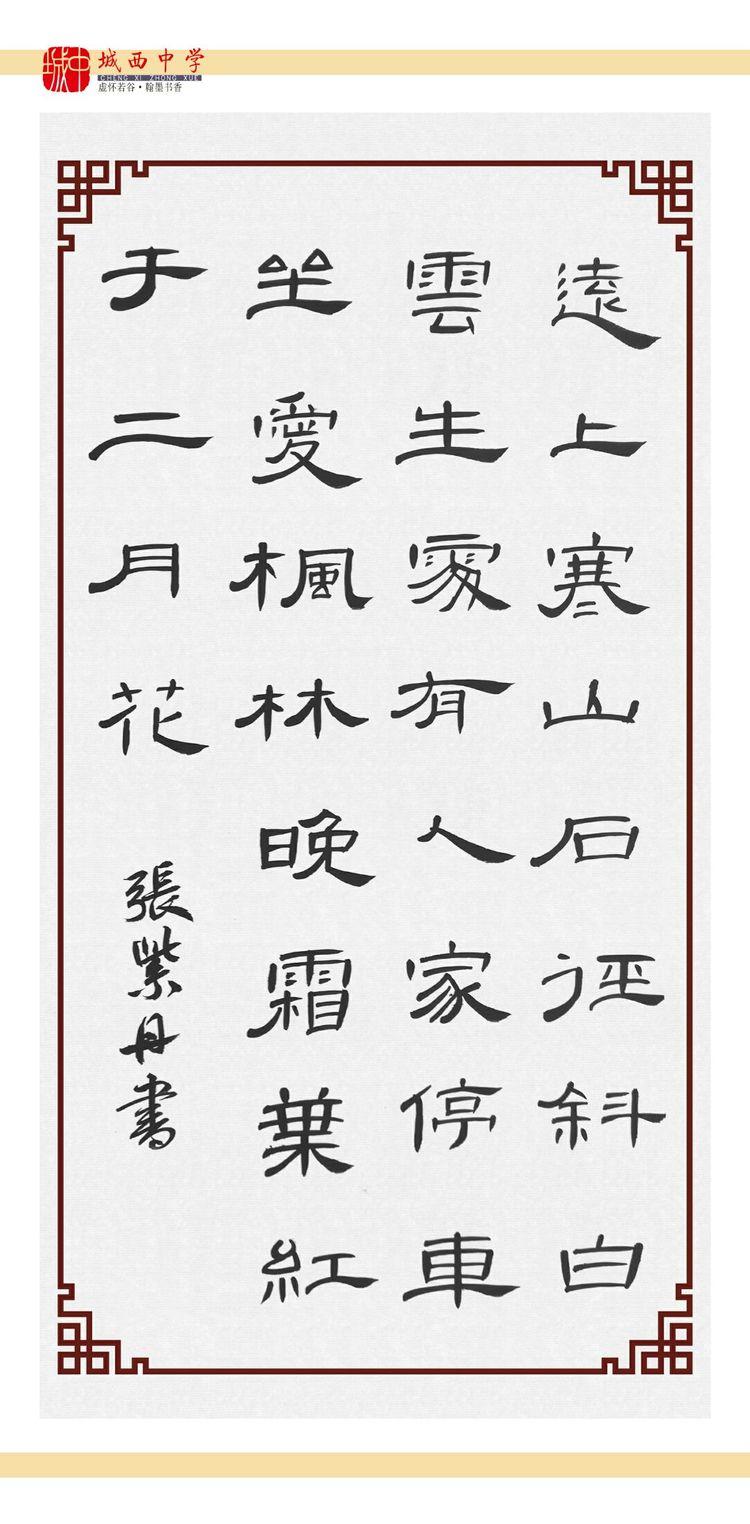 城中
城西中学
CHENG XI ZHONG XUE
虚怀若谷·翰墨书香
遠上寒山石徑斜白
雲生處有人家停車
坐愛楓林晚霜葉紅
于二月花
張紫丹書